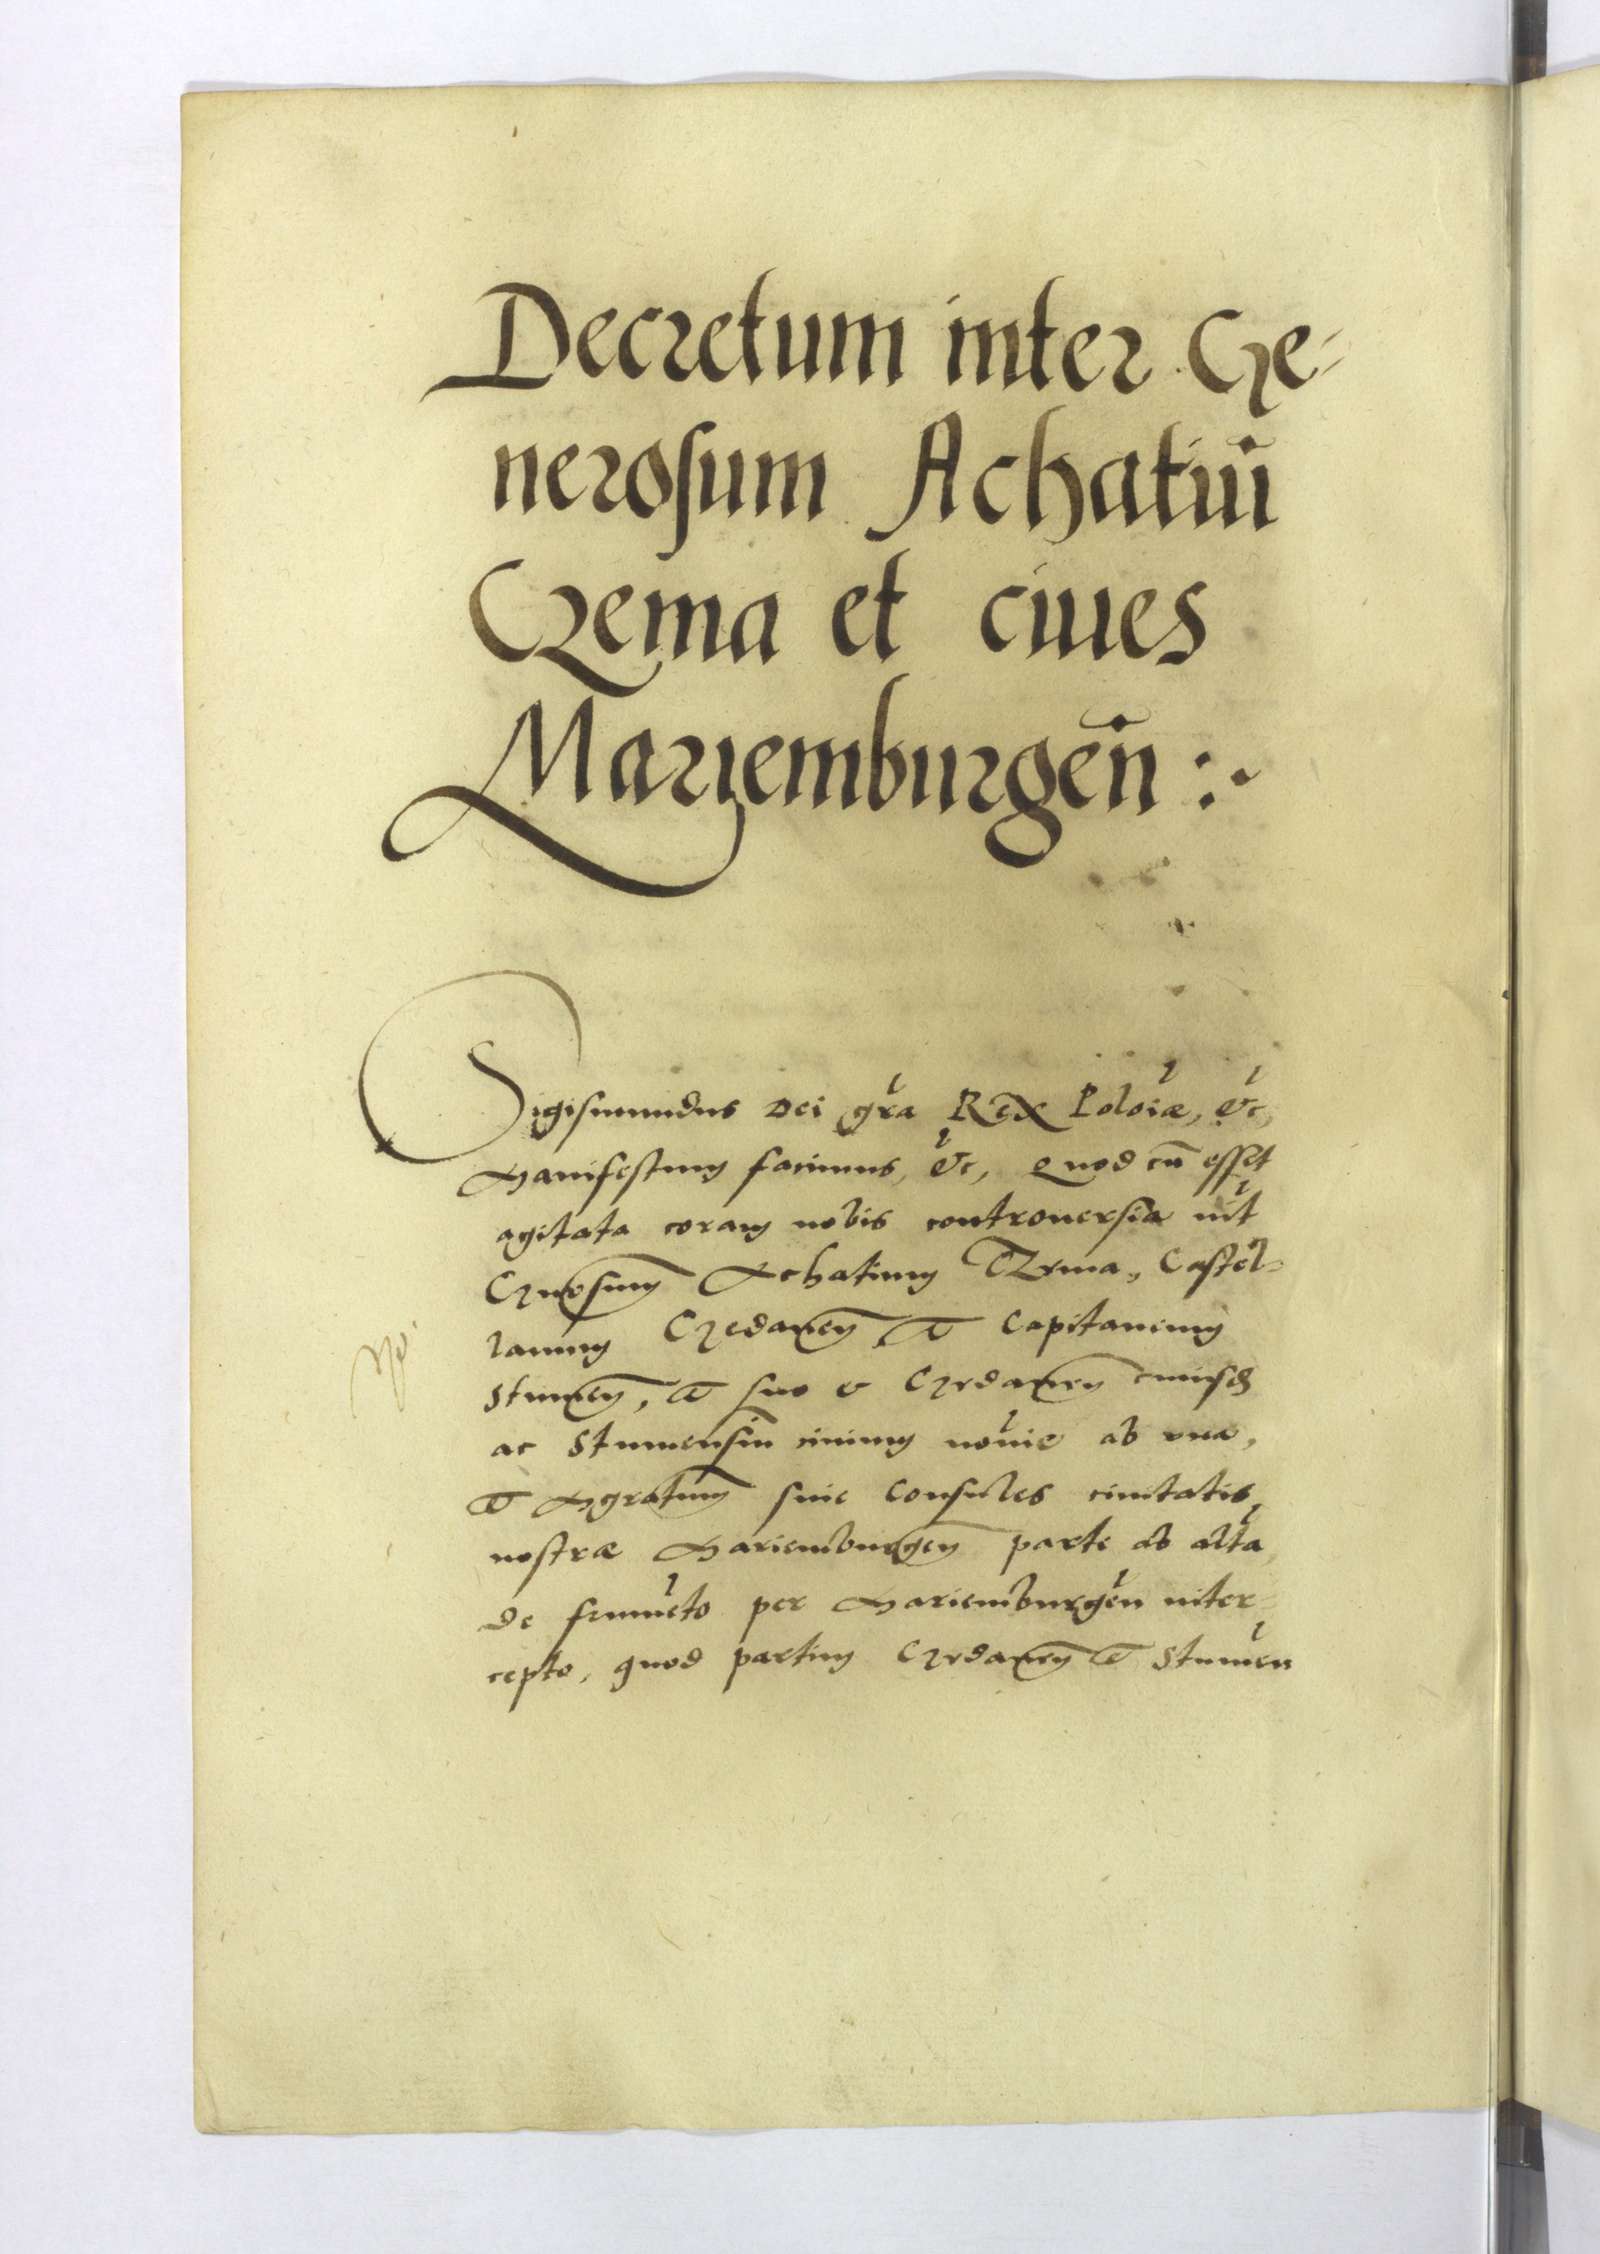 Decretum inter Ge-
nerosum Achatiū
Czema et ciues
Mariemburgen̄ :~
Sigismundus Dei gr̄a Rex Poloīæ, &c,
Manifestum facimus, &c, Quod cū esset
agitata coram nobis controuersia int
Gnosum Achatium Czema, Castel-
lanum Gedanen̄ et Capitaneum
Stumen̄, et suo & Gedanen̄
ac Stumensiū ciuium noīe ab una,
et Magratum siue Consules ciuitatis
nostræ Mariemburgen̄ parte ab altā
de frumēto per Mariemburgen̄ inter-
cepto, quod partim Gedanen̄ et Stumen̄